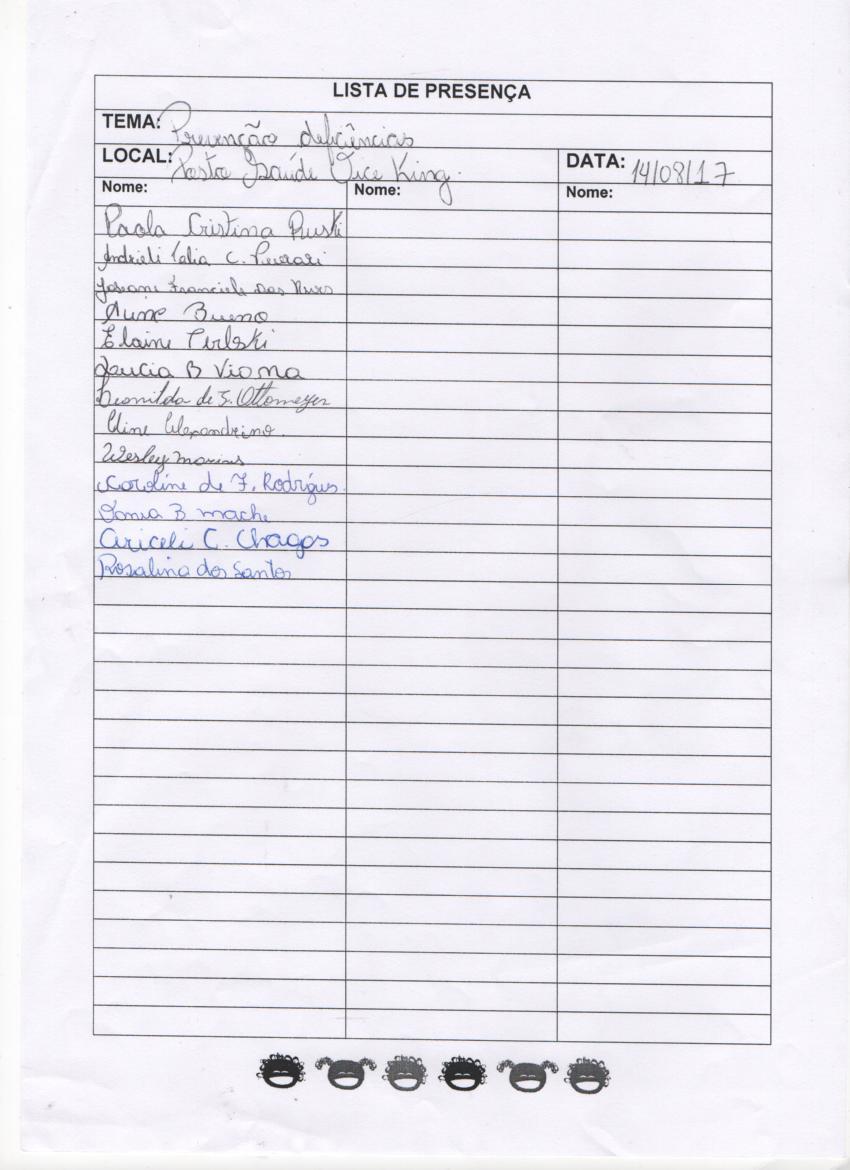 LISTA DE PRESENÇA
TEMA: Prevenção deficiências
LOCAL: Posto Saúde Vice King.
DATA: 14/08/17
Nome: Nome: Nome:
Paola Cristina Ruski
Andrieli C.
Franciele das
Aline Bueno
Elaine Perlski
B Viana
Leonilda de S. Ottomeyer
Eline Alexandrino.
Wesley
Caroline de F. Rodrigues.
Sonia B mache
Ariceli C. Chagas
Rosalina dos Santos